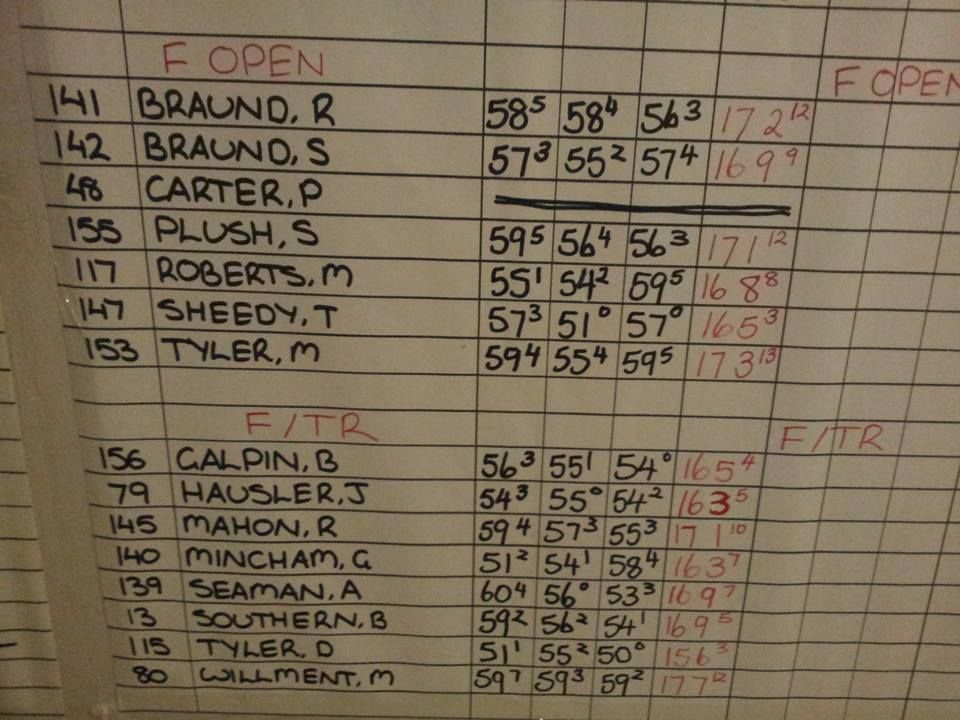 F OPEN F OPEN
141 BRAUND, R 58⁵ 58⁴ 56³ 172¹²
142 BRAUND, S 57³ 55² 57⁴ 169⁹
48 CARTER, P
155 PLUSH, S 59⁵ 56⁴ 56³ 171¹²
117 ROBERTS, M 55¹ 54² 59⁵ 168⁸
147 SHEEDY, T 57³ 51⁰ 57⁰ 165³
153 TYLER, M 59⁴ 55⁴ 59⁵ 173¹³
F/TR F/TR
156 GALPIN, B 56³ 55¹ 54⁰ 165⁴
79 HAUSLER, J 54³ 55⁰ 54² 163⁵
145 MAHON, R 59⁴ 57³ 55³ 171¹⁰
140 MINCHAM, G 51² 54¹ 58⁴ 163⁷
139 SEAMAN, A 60⁴ 56⁰ 53³ 169⁷
13 SOUTHERN, B 59² 56² 54¹ 169⁵
115 TYLER, D 51¹ 55² 50⁰ 156³
80 WILLMENT, M 59⁷ 59³ 59² 177¹²